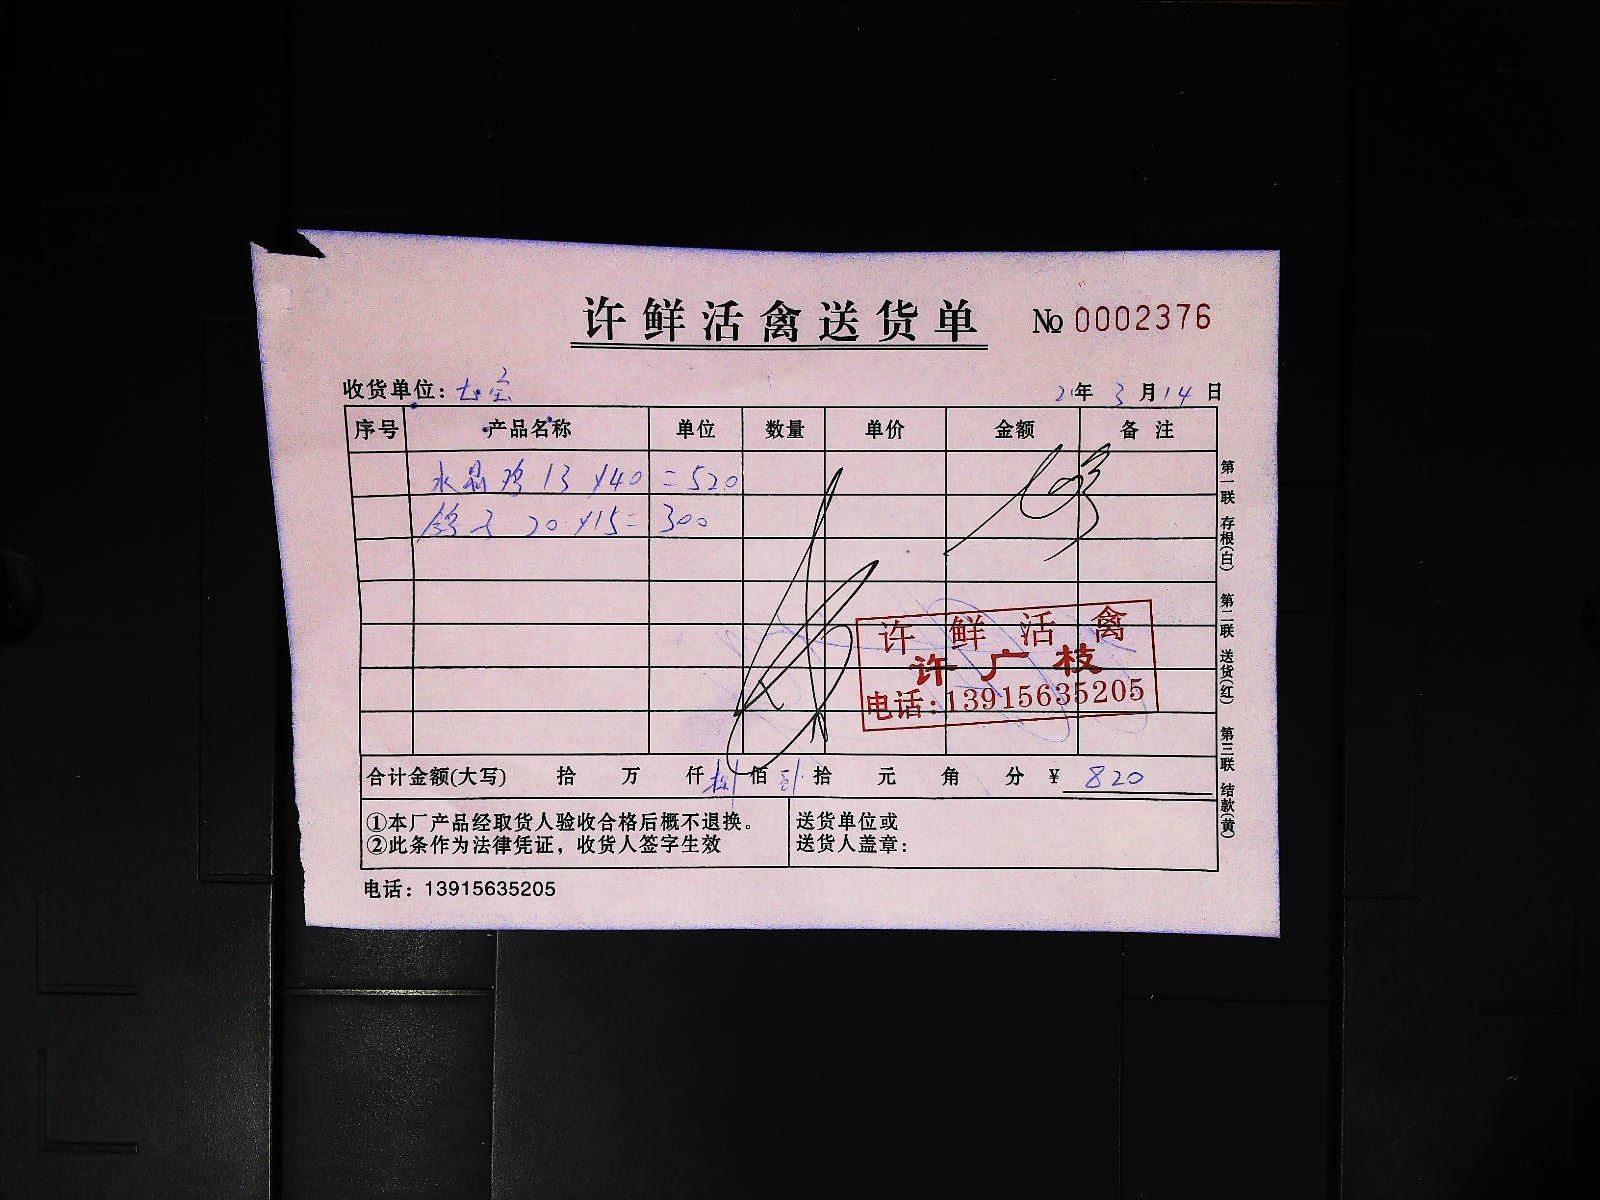 许鲜活禽送货单 № 0002376
收货单位：七宝 21年 3月14日
序号 产品名称 单位 数量 单价 金额 备注
水晶鸡 13 ×40 = 520
鸽子 20 ×15 = 300
许鲜活禽
许广枝
电话:13915635205
合计金额(大写) 拾 万 仟 捌佰 贰拾 元 角 分 ¥ 820
①本厂产品经取货人验收合格后概不退换。
②此条作为法律凭证，收货人签字生效
送货单位或
送货人盖章：
电话：13915635205
第一联 存根(白) 第二联 送货(红) 第三联 结款(黄)